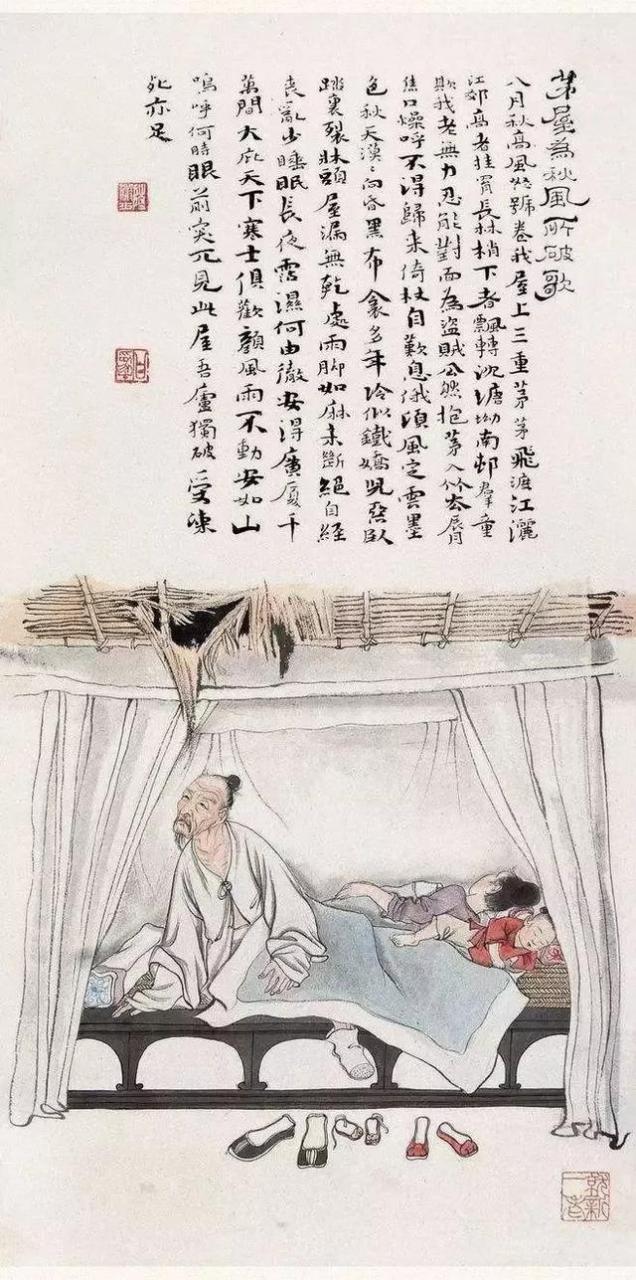 茅屋為秋風所破歌
八月秋高風怒號卷我屋上三重茅茅飛渡江灑
江郊高者挂罥長林梢下者飄轉沈塘坳南邨羣童
欺我老無力忍能對面為盜賊公然抱茅入竹去脣
焦口燥呼不得歸来倚杖自歎息俄頃風定雲墨
色秋天漠〻向昏黑布衾多年冷似鐵嬌兒惡臥
踏裏裂牀頭屋漏無乾處雨脚如麻未斷絕自經
喪亂少睡眠長夜霑濕何由徹安得廣厦千
萬間大庇天下寒士俱歡顏風雨不動安如山
嗚呼何時眼前突兀見此屋吾廬獨破受凍
死亦足